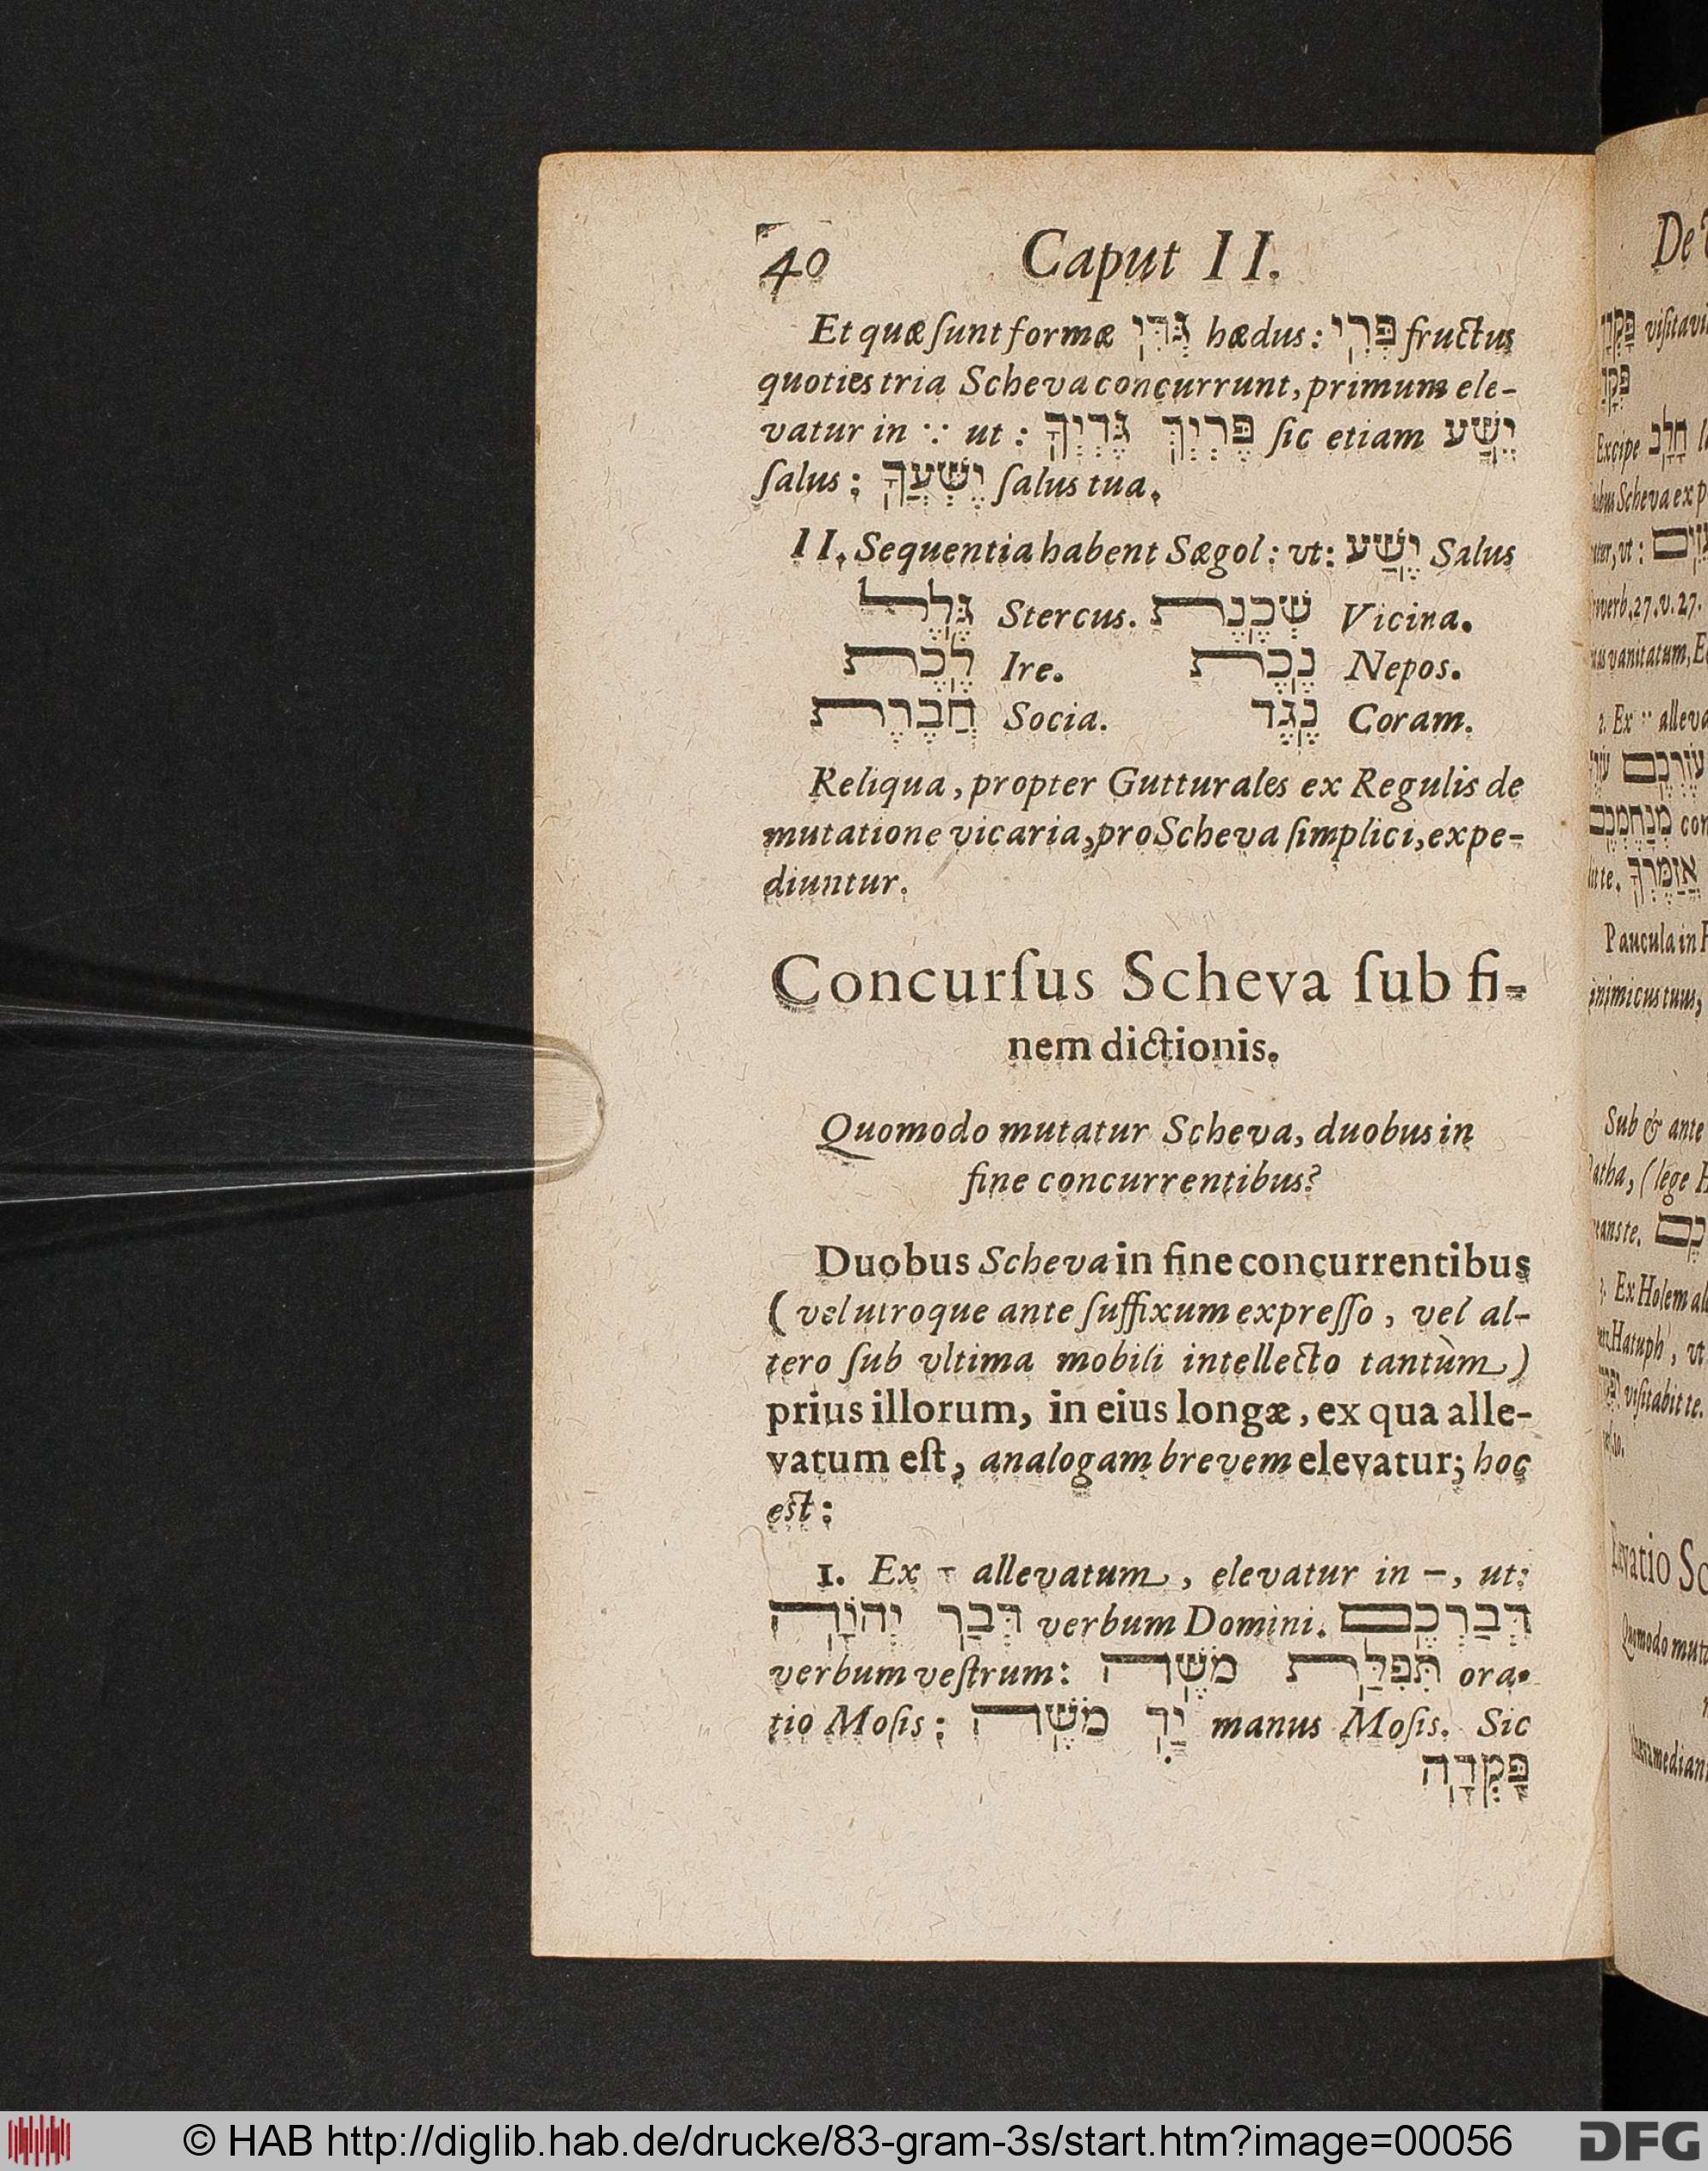 40 Caput II.
Et quæ ſunt formæ גְּדִי hædus: פְּרִי fructus
quoties tria Scheva concurrunt, primum ele-
vatur in ֶ ut: גֶּדְיְךָ פֶּרְיְךָ ſic etiam יֶשַׁע
ſalus; יֶשְׁעֲךָ ſalus tua.
II. Sequentia habent Sægol: vt: יֶשַׁע Salus
גֶּלֶל Stercus. שְׁכֶנֶת Vicina.
לֶכֶת Ire. נֶכֶת Nepos.
חֲבֶרֶת Socia. נֶגֶד Coram.
Reliqua, propter Gutturales ex Regulis de
mutatione vicaria, pro Scheva ſimplici, expe-
diuntur.
Concurſus Scheva ſub fi-
nem dictionis.
Quomodo mutatur Scheva, duobus in
fine concurrentibus?
Duobus Scheva in fine concurrentibus
( vel utroque ante ſuffixum expreſſo, vel al-
tero ſub vltima mobili intellecto tantùm )
prius illorum, in eius longæ, ex qua alle-
vatum eſt, analogam brevem elevatur; hoc
eſt:
1. Ex ָ allevatum, elevatur in ַ, ut:
דְּבַר יְהוָֹה verbum Domini. דְּבַרְכֶם
verbum veſtrum: תְּפִלַּת מֹשֶׁה ora-
tio Moſis; יַד מֹשֶׁה manus Moſis. Sic
פָּקְדָה
De
פָּקְדָה viſitavi
Excipe חָלָב
Scheva ex p
ut:
verb. 27. v. 27.
vanitatum, E
2. Ex alleva
Paucula in
inimicus tuus,
Sub & ante
Patha, ( lege
anste.
Ex Holem al
Hatuph, vt
viſitabit te.
vatio Sc
Quomodo muta
© HAB http://diglib.hab.de/drucke/83-gram-3s/start.htm?image=00056 DFG